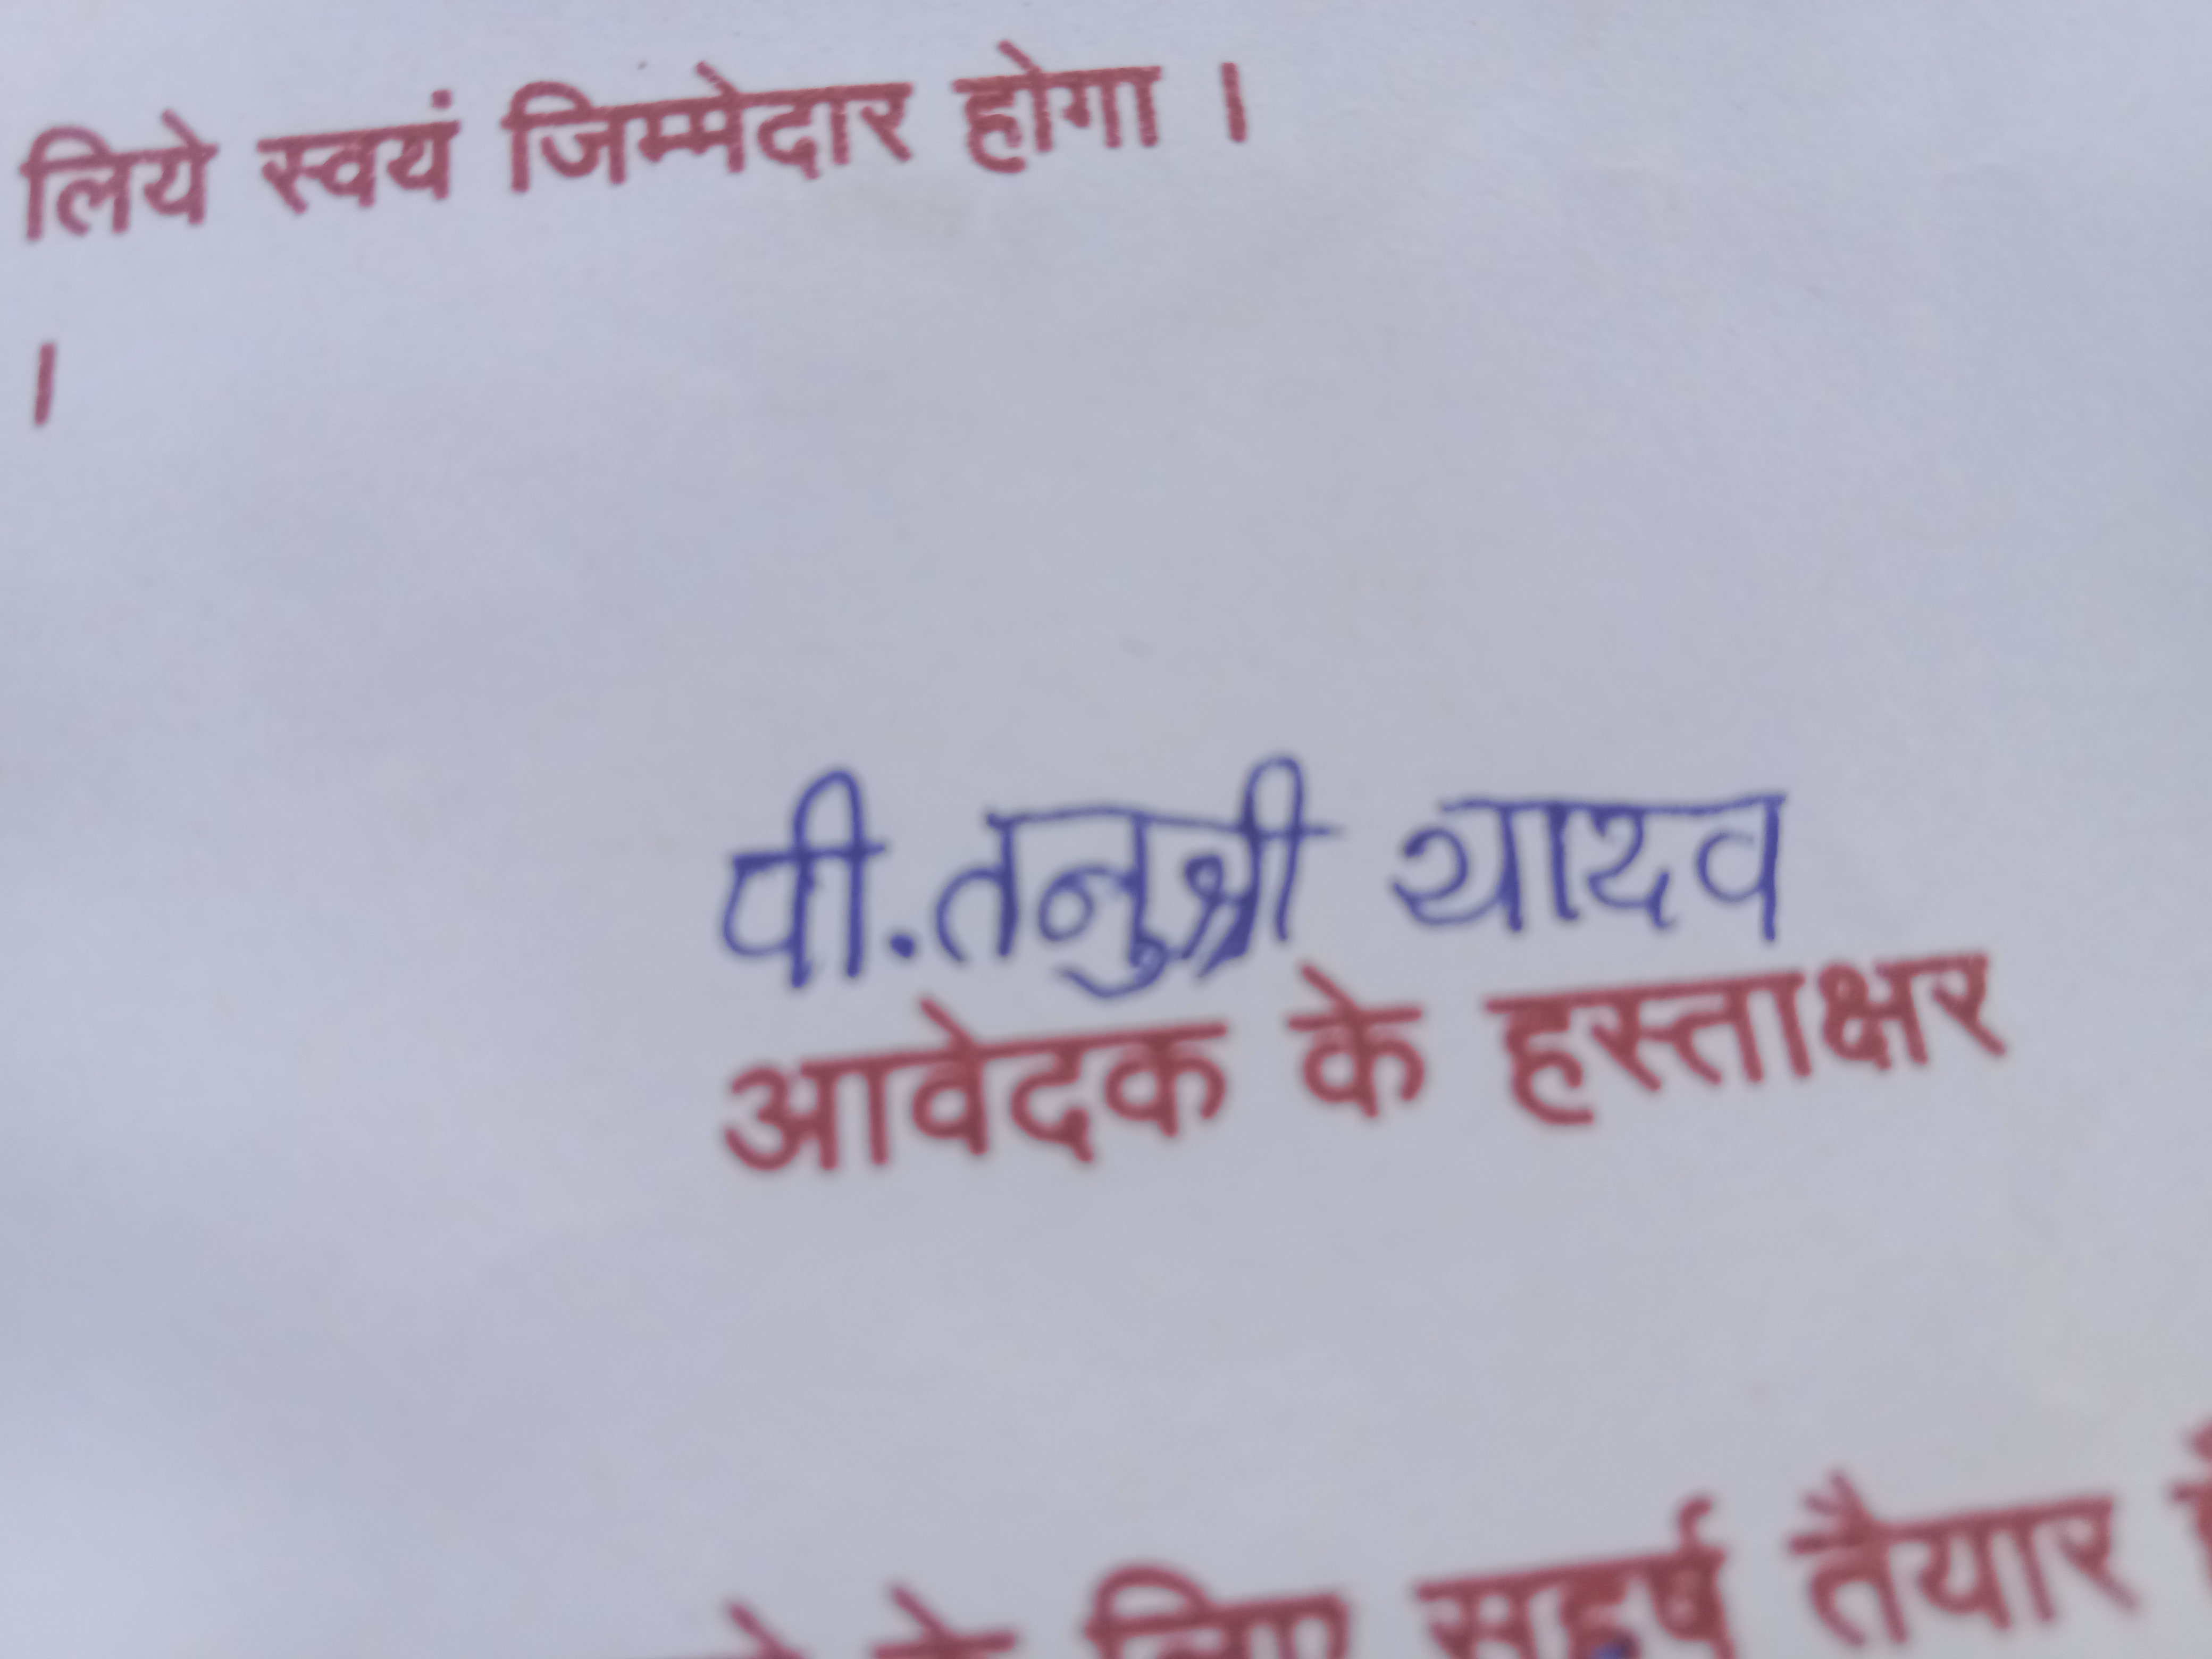 लिये स्वयं जिम्मेदार होगा ।
।
पी. तनुश्री यादव
आवेदक के हस्ताक्षर
के लिए सहर्ष तैयार